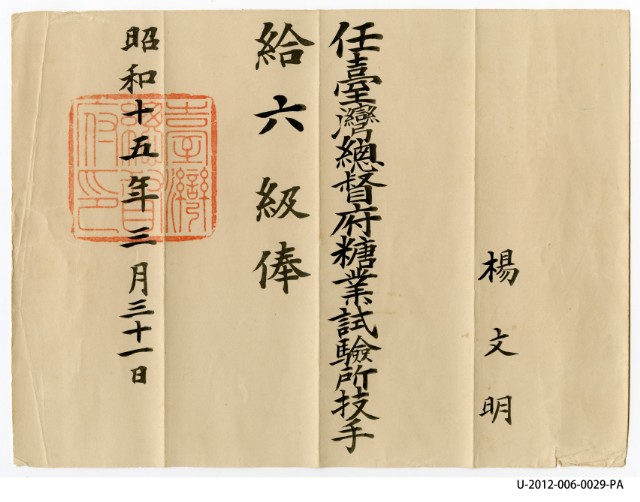 楊文明
任臺灣總督府糖業試驗所技手
給六級俸
昭和十五年三月三十一日
臺灣總督府印
U-2012-006-0029-PA